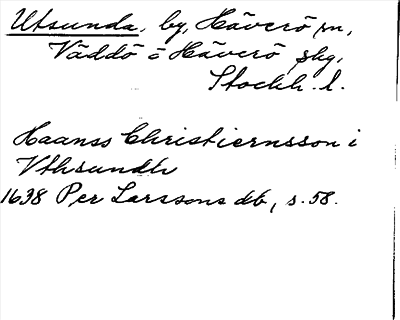 Utsunda, by, Häverö sn,
Väddö o Häverö skg,
Stockh. l.
Haanss Christiernsson i
Vthsundh
1638 Per Larssons db, s. 58.